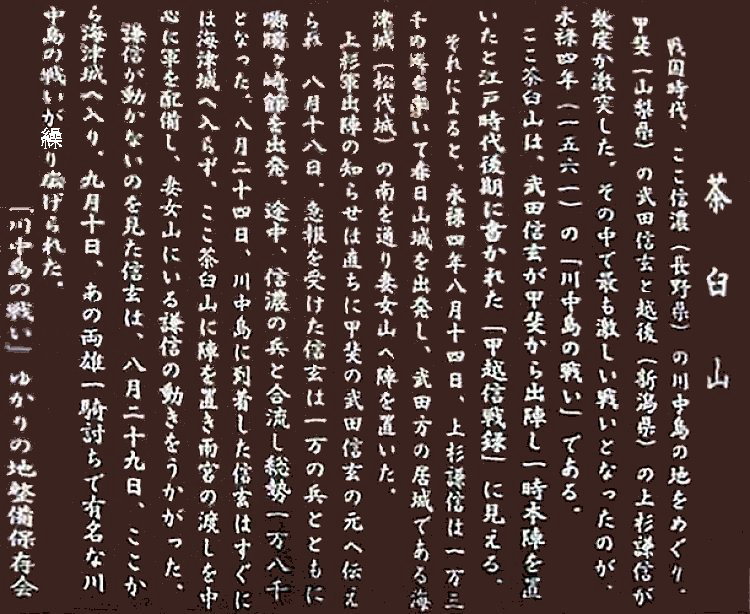 茶臼山
戦国時代、ここ信濃（長野県）の川中島の地をめぐり、
甲斐（山梨県）の武田信玄と越後（新潟県）の上杉謙信が
幾度か激突した。その中で最も激しい戦いとなったのが、
永禄四年（一五六一）の「川中島の戦い」である。
ここ茶臼山は、武田信玄が甲斐から出陣し一時本陣を置
いたと江戸時代後期に書かれた「甲越信戦録」に見える。
それによると、永禄四年八月十四日、上杉謙信は一万三
千の兵を率いて春日山城を出発し、武田方の居城である海
津城（松代城）の南を通り妻女山へ陣を置いた。
上杉軍出陣の知らせは直ちに甲斐の武田信玄の元へ伝え
られ　八月十八日、急報を受けた信玄は一万の兵とともに
躑躅ヶ崎館を出発。途中、信濃の兵と合流し総勢一万八千
となった。八月二十四日、川中島に到着した信玄はすぐに
は海津城へ入らず、ここ茶臼山に陣を置き雨宮の渡しを中
心に軍を配備し、妻女山にいる謙信の動きをうかがった。
謙信が動かないのを見た信玄は、八月二十九日、ここか
ら海津城へ入り、九月十日、あの両雄一騎討ちで有名な川
中島の戦いが繰り広げられた。
「川中島の戦い」ゆかりの地整備保存会